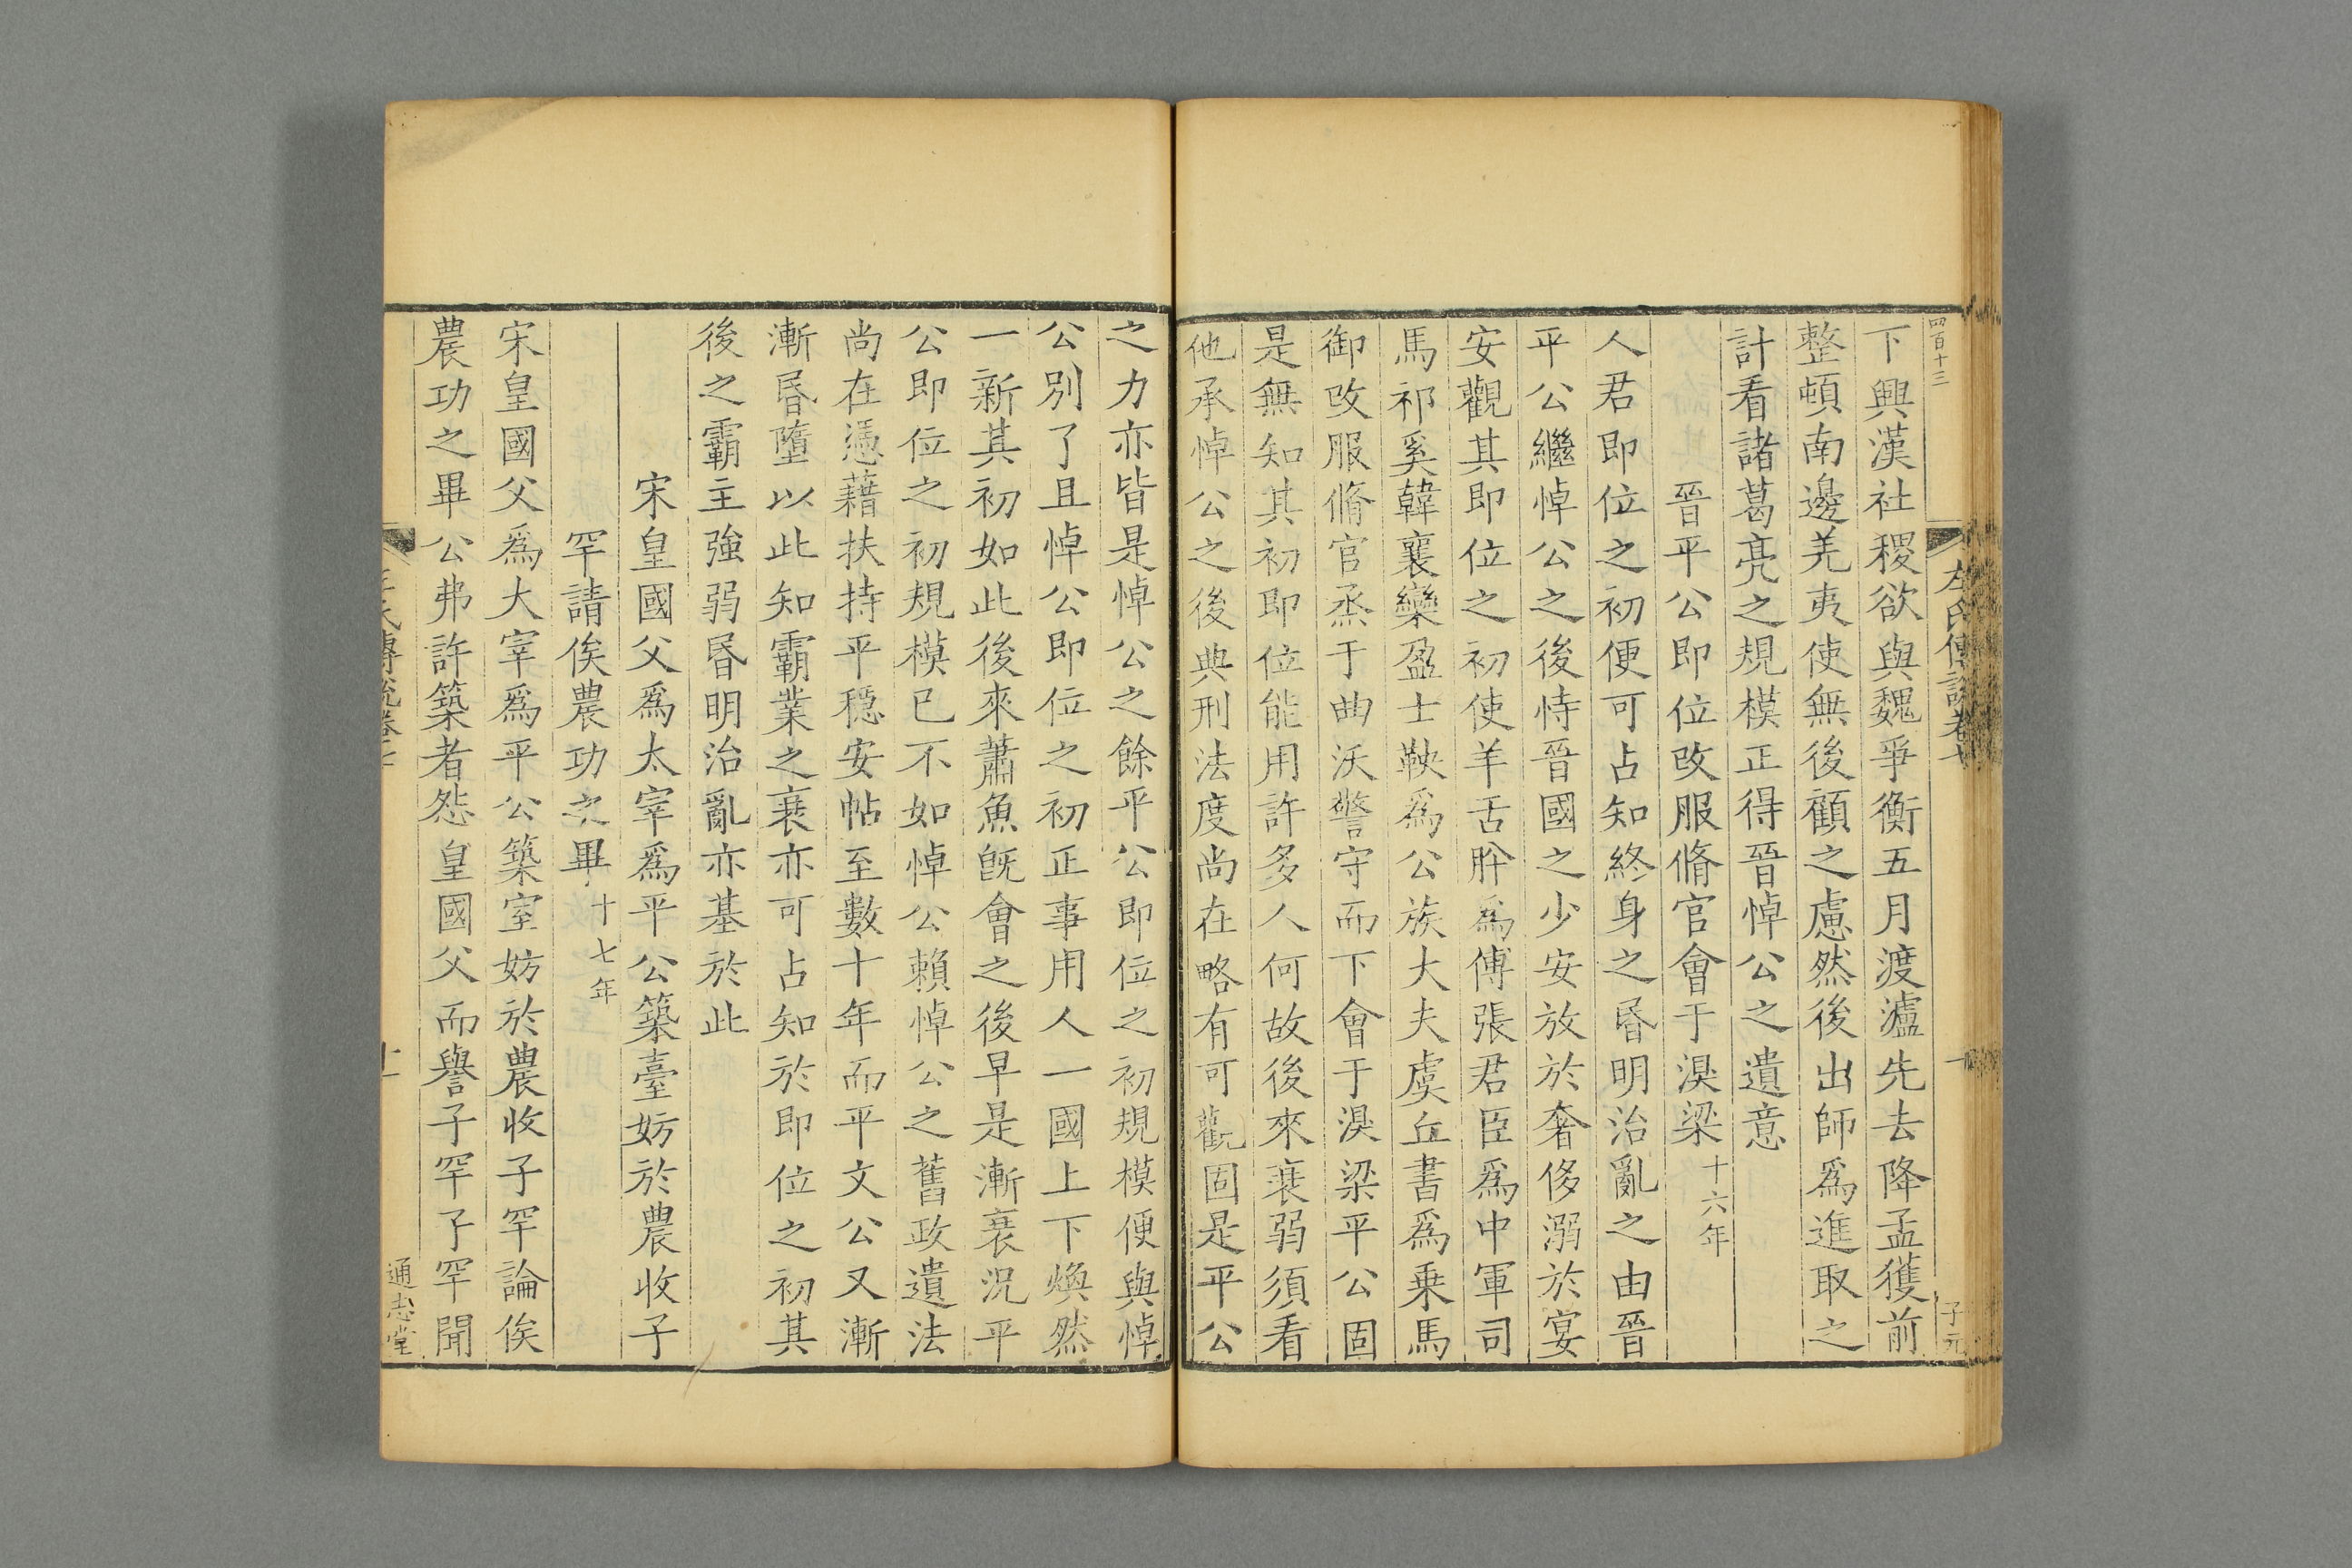 四百十三
左氏傳說卷七
十
子元
下興漢社稷欲與魏爭衡五月渡瀘先去降孟獲前
整頓南邊羌夷使無後顧之慮然後出師爲進取之
計看諸葛亮之規模正得晉悼公之遺意
晉平公即位改服脩官會于湨梁十六年
人君即位之初便可占知終身之昬明治亂之由晉
平公繼悼公之後恃晉國之少安放於奢侈溺於宴
安觀其即位之初使羊舌肸爲傅張君臣爲中軍司
馬祁奚韓襄欒盈士鞅爲公族大夫虞丘書爲乗馬
御改服脩官烝于曲沃警守而下會于湨梁平公固
是無知其初即位能用許多人何故後來衰弱須看
他承悼公之後典刑法度尚在略有可觀固是平公
之力亦皆是悼公之餘平公即位之初規模便與悼
公別了且悼公即位之初正事用人一國上下煥然
一新其初如此後來蕭魚旣會之後早是漸衰況平
公即位之初規模已不如悼公賴悼公之舊政遺法
尚在憑藉扶持平穩安帖至數十年而平文公又漸
漸昬墮以此知霸業之衰亦可占知於即位之初其
後之霸主強弱昬明治亂亦基於此
宋皇國父爲太宰爲平公築臺妨於農收子
罕請俟農功之畢十七年
宋皇國父爲大宰爲平公築室妨於農收子罕論俟
農功之畢公弗許築者怨皇國父而譽子罕子罕聞
通志堂